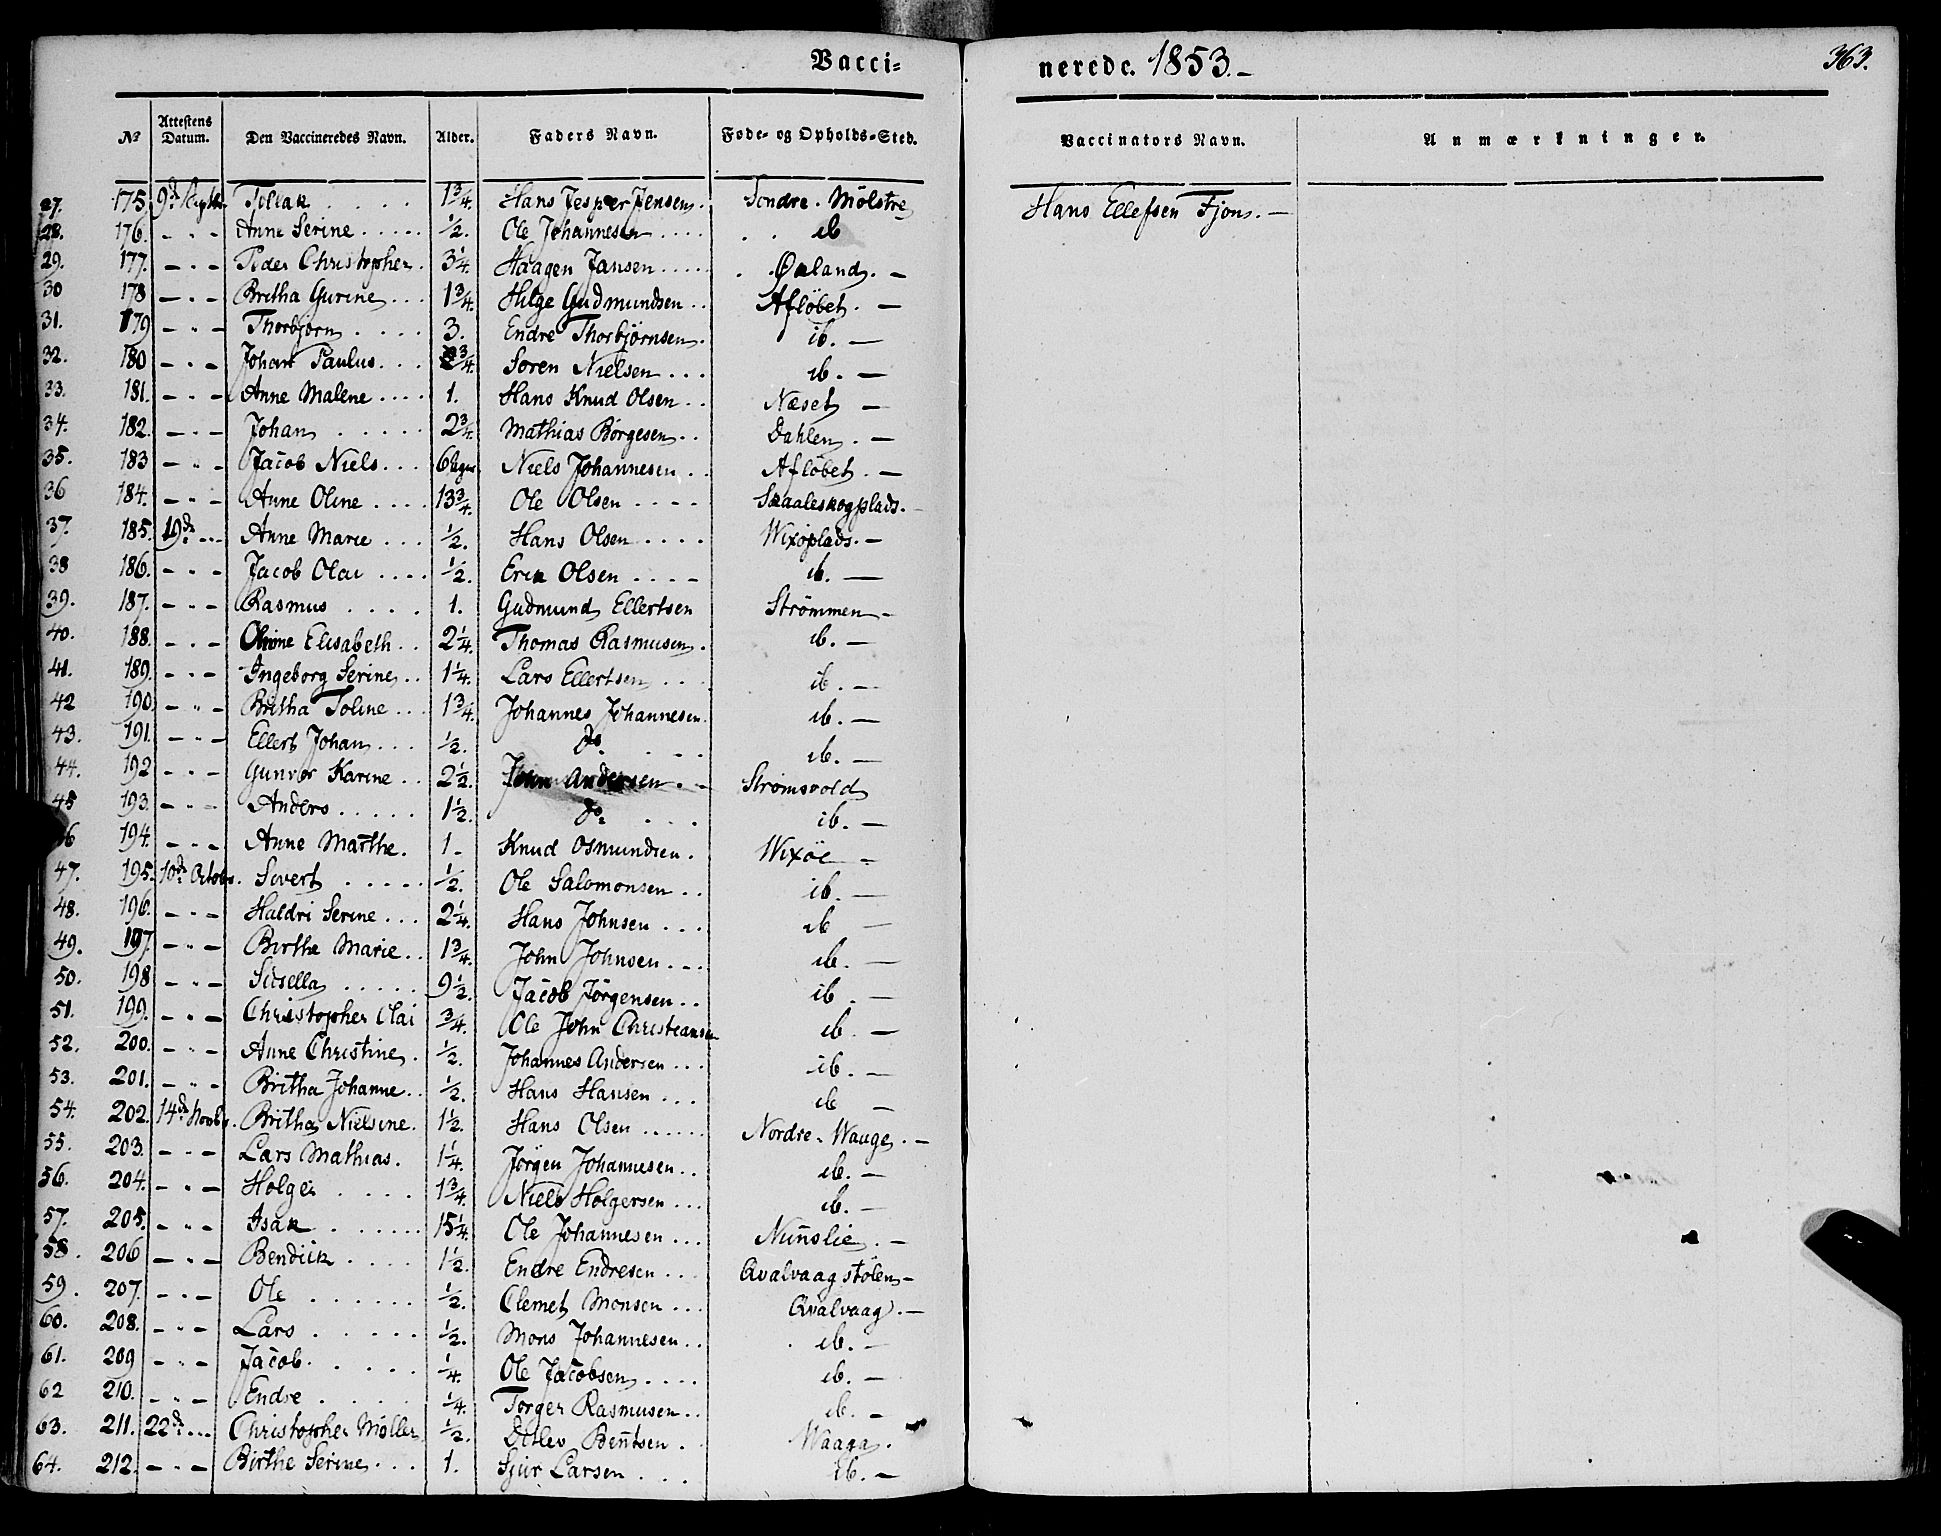 Vacci= nerede. 1853.- 363.
No Attestens Datum. Den Vaccineredes Navn. Alder. Faders Navn. Føde- og Opholds-Sted. Vaccinators Navn. Anmærkninger.
27. 175. 9de Septbr Tollak 1 3/4. Hans Jesper Jensen. Søndre Mölstre Hans Ellefsen Fjon. -
28. 176. - " - Anne Serine 1/2. Ole Johannesen ib
29. 177. - " - Peder Christopher 3 1/4. Haagen Jansen Øeland. -
30 178 - " - Britha Gurine 1 3/4. Helge Gudmundsen Afløbet. -
31. 179 - " - Thorbjørn 3. Endre Thorbjørnsen. ib. -
32. 180 - " - Johan Paulus 3/4. Søren Nielsen ib. -
33. 181. - " - Anne Malene 1. Hans Knud Olsen Næset -
34. 182. - " - Johan 2 3/4. Mathias Børgesen Dahlen. -
35. 183 - " - Jacob Niels 6 Uger Niels Johannesen Afløbet. -
36 184. - " - Anne Oline 13 3/4. Ole Olsen Skaaleskogplads. -
37. 185. 19de Anne Marie 1/2. Hans Olsen Wixøplads. -
38 186. - " - Jacob Olai 1/2. Erik Olsen ib. -
39. 187. - " - Rasmus 1. Gudmund Ellertsen Strømmen -
40. 188. - " - Elisabeth 2 1/4. Thomas Rasmusen. ib. -
41. 189. - " - Ingeborg Serine 1 1/4. Lars Ellertsen ib. -
42 190. - " - Britha Toline 1 3/4. Johannes Johannesen ib. -
43. 191. - " - Ellert Johan 1/2. do ib. -
44. 192 - " - Gunvor Karine 2 1/2. John Andersen. - Strømsvold
45 193. - " - Anders 1 1/2. do ib. -
6 194. - " - Anne Marthe. 1 - Knud Osmundsen. Wixøe -
47. 195. 10de Octobr. Sivert 1/2. Ole Salomonsen ib. -
48. 196. - " - Haldri Serine 2 1/4. Hans Johnsen ib -
49. 197. - " - Birthe Marie 1 3/4. John Johnsen ib. -
50. 198 - " - Sissella 9 1/2. Jacob Jørgensen ib. -
51. 199. - " - Christopher Olai 3/4. Ole John Christiansen ib. -
52. 200. - " - Anne Christine. 1/2. Johannes Andersen ib. -
53. 201. - " - Britha Johanne 1/2. Hans Hansen ib -
54. 202. 14de Novbr. Britha Nielsine. 1 1/2. Hans Olsen Nordre Wauge. -
55. 203. - " - Lars Mathias. 1 1/4. Jørgen Johannesen ib. -
56. 204. - " - Holger 1 3/4. Niels Holgersen ib. -
57. 205. - " - Isak 15 1/4. Ole Johannesen Nunslie. -
58. 206 - " - Bendick 1 1/2. Endre Endresen Qvalvaagstølen -
59. 207. - " - Ole 1/2. Clemet Monsen Qvalvaag. -
60. 208. - " - Lars 1/2. Mons Johannesen ib. -
61. 209 - " - Jacob 1/4. Ole Jacobsen ib. -
62 210. - " - Endre 1/4. Torger Rasmusen ib. -
63. 211. 22de Christopher Møller 1/2. Detlev Bentsen. Waaga.
64. 212. - " - Birthe Serine 1. Sjur Larsen ib. -